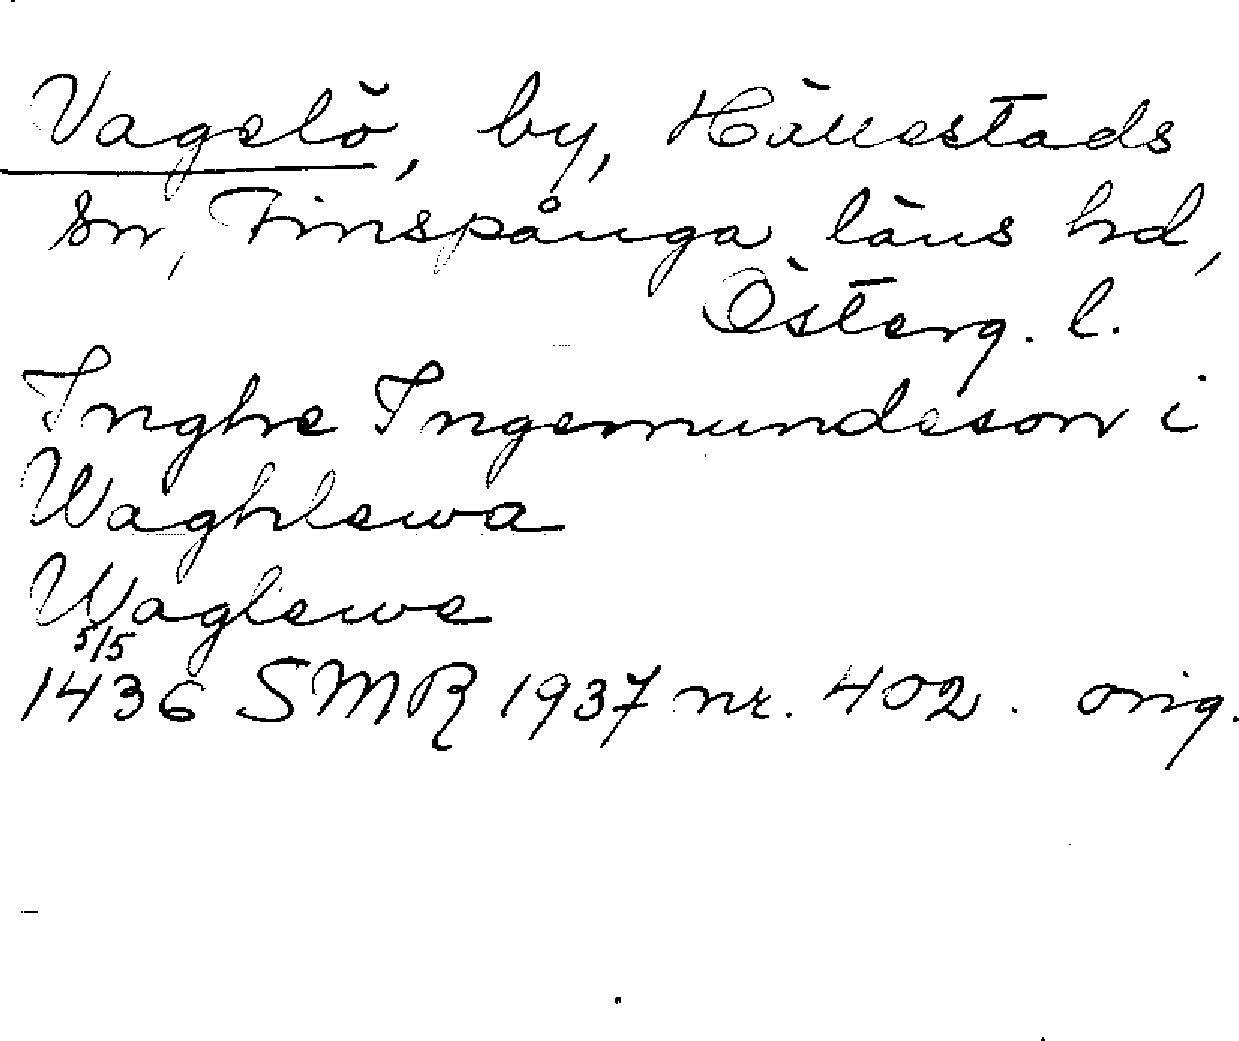 Vagelö, by, Hällestads
sn, Finspånga läns hd,
Österg. l.
Inghe Ingemundeson i
Waghlewa
Waglewe
5/5
1436 SMR 1937 nr. 402. orig.